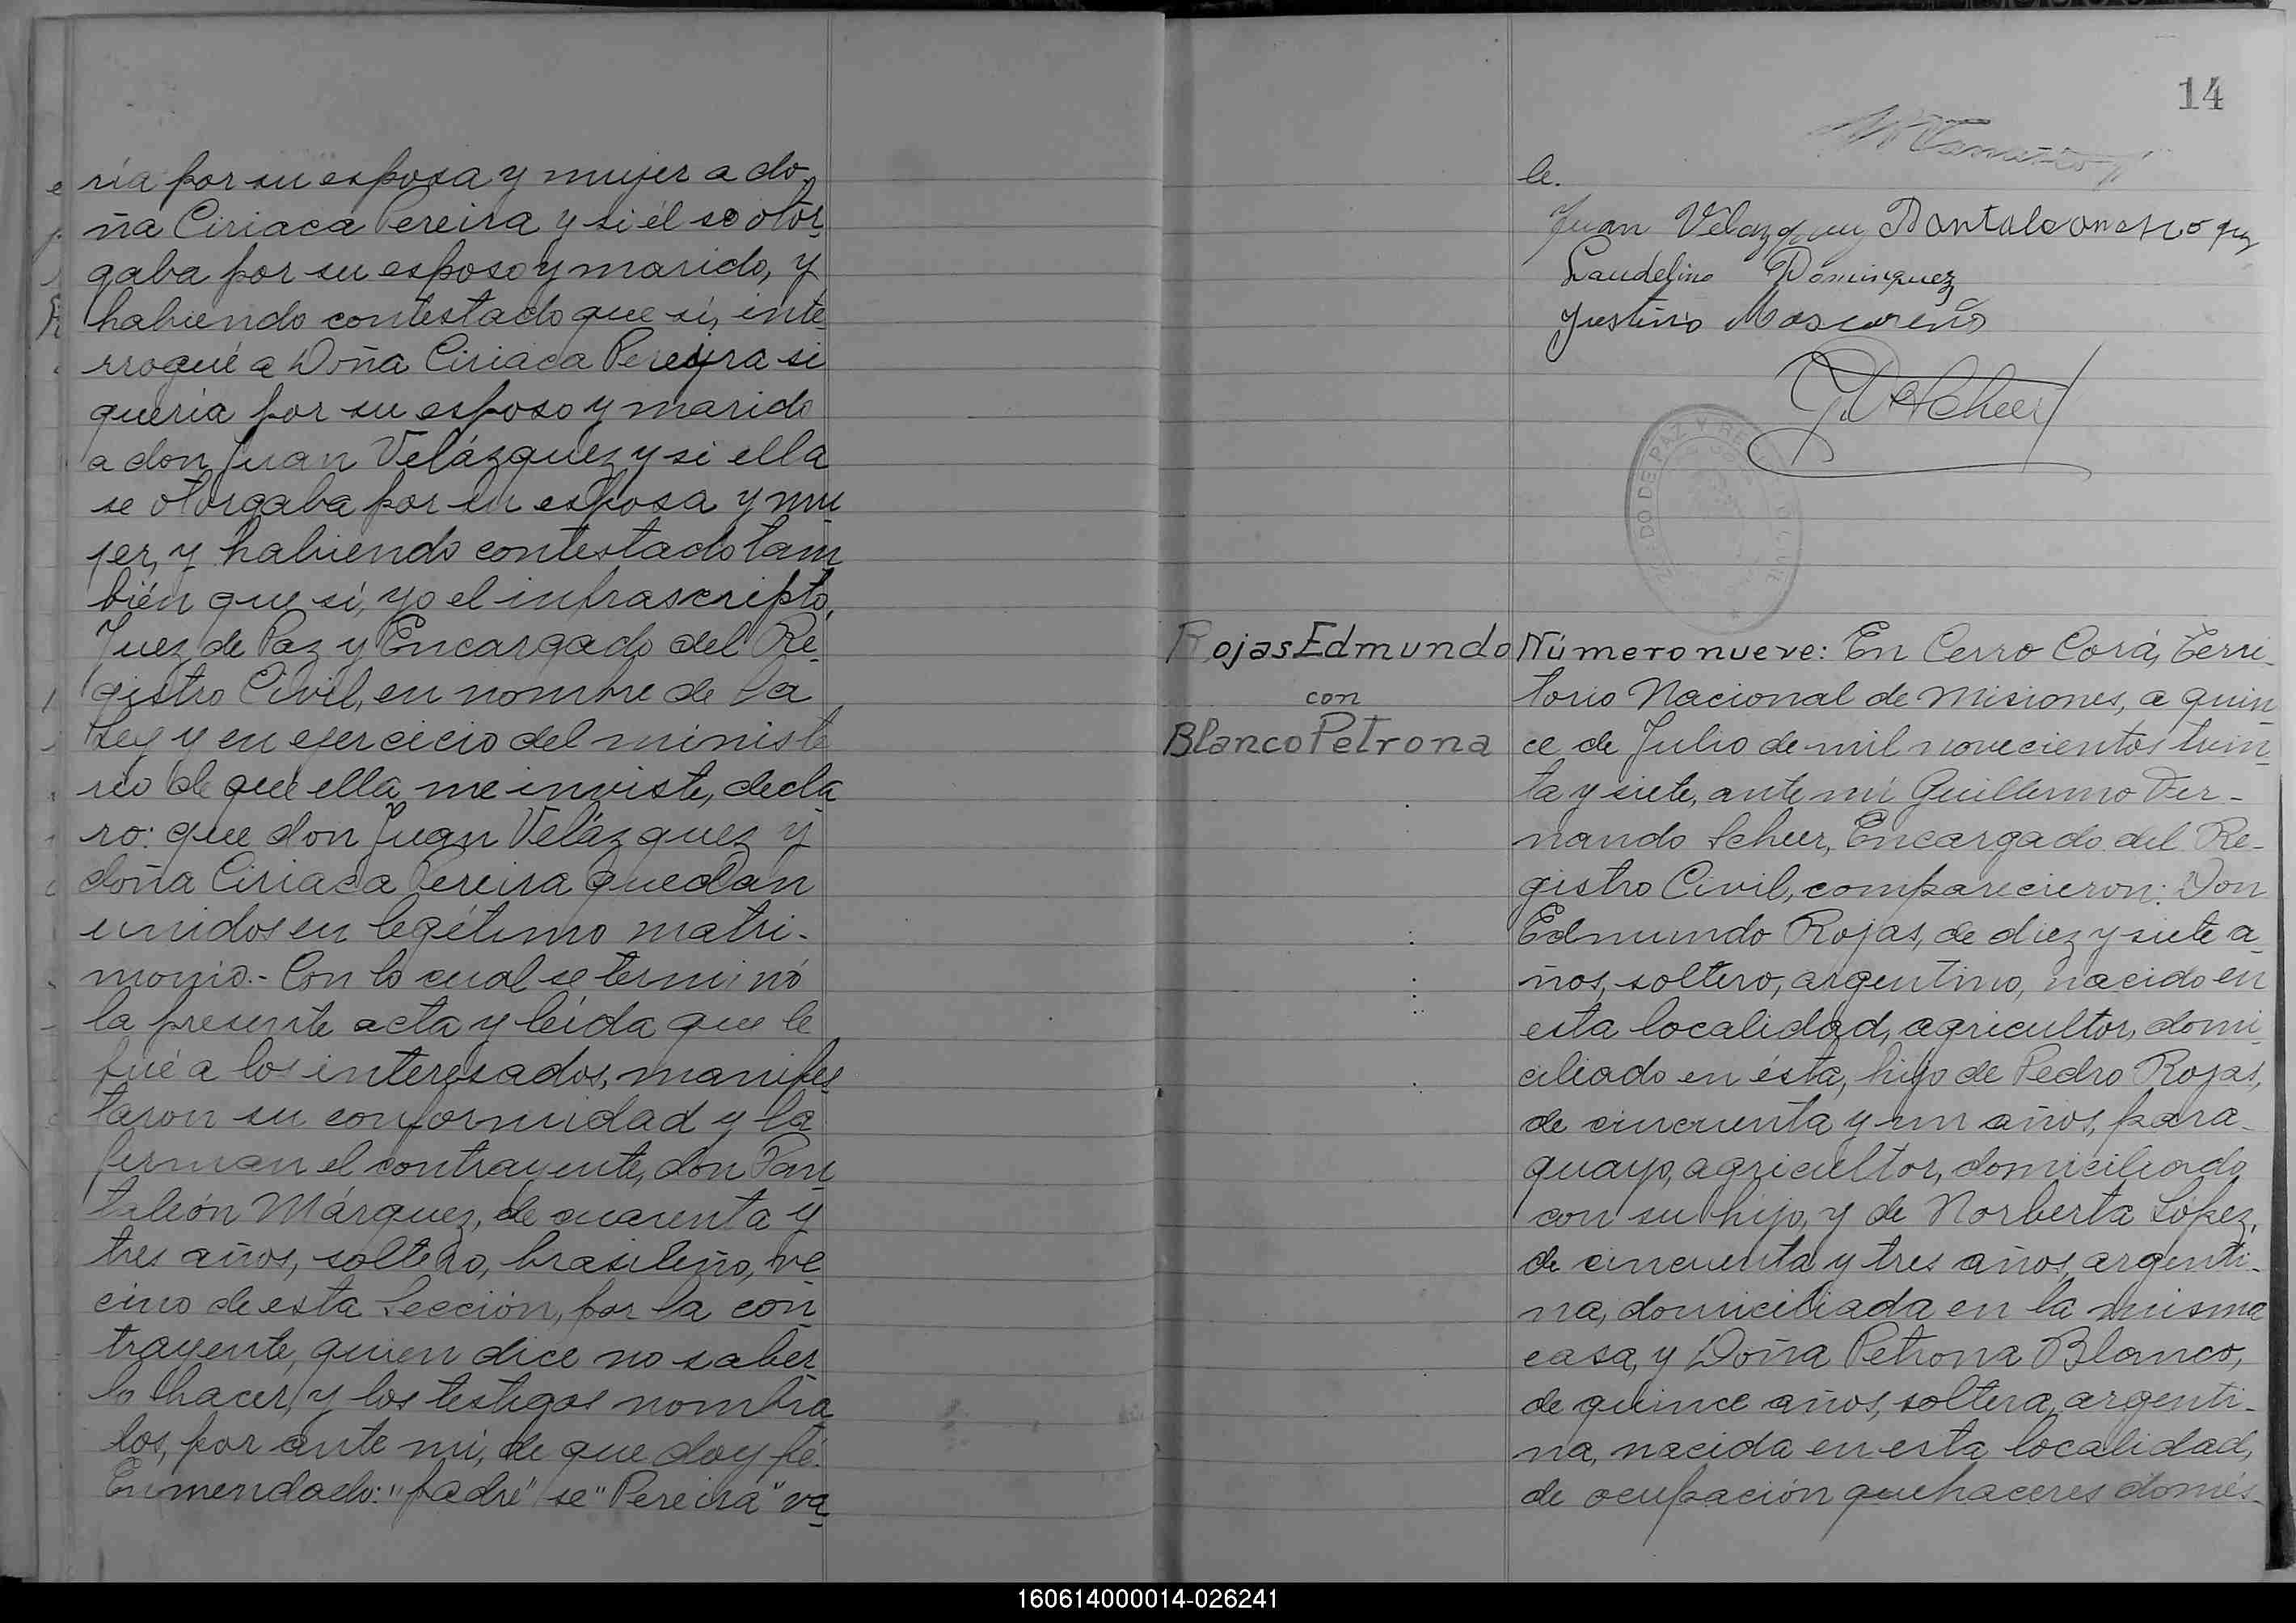 ría por su esposa y mujer a do-
ña Ciriaca Pereira y si él se otor-
gaba por su esposo y marido, y
habiendo contestado que sí, inte-
rrogué a Doña Ciriaca Pereyra si
quería por su esposo y marido
a don Juan Velázquez y si ella
se otorgaba por su esposa y mu-
jer, y habiendo contestado tam-
bién que sí, yo el infrascripto,
Juez de Paz y Encargado del Re-
gistro Civil, en nombre de la
Ley y en ejercicio del ministe-
rio de que ella me inviste, decla-
ro: que don Juan Velázquez y
doña Ciriaca Pereira quedan
unidos en legítimo matri-
monio.- Con lo cual se terminó
la presente acta y leída que le
fué a los interesados, manifes-
taron su conformidad y la
firman el contrayente, don Pan-
taleón Márquez, de cuarenta y
tres años, soltero, brasileño, ve-
cino de esta Sección, por la con-
trayente, quien dice no saber-
lo hacer, y los testigos nombra-
los, por ante mí, de que doy fé.
Enmendado: "padre" se "Pereira" va-
14
le.
Juan Velazquez
Laudelino Dominguez
Justino Mascareño
G. F. Scheer
Rojas Edmundo
con
Blanco Petrona
Número nueve: En Cerro Corá, Terri-
torio Nacional de Misiones, a quin-
ce de Julio de mil novecientos trein-
ta y siete, ante mí Guillermo Fer-
nando Scheer, Encargado del Re-
gistro Civil, comparecieron: Don
Edmundo Rojas, de diez y siete a-
ños, soltero, argentino, nacido en
esta localidad, agricultor, domi-
ciliado en ésta, hijo de Pedro Rojas,
de cincuenta y un años, para-
guayo, agricultor, domiciliado
con su hijo, y de Norberta López,
de cincuenta y tres años, argenti-
na, domiciliada en la misma
casa, y Doña Petrona Blanco,
de quince años, soltera, argenti-
na, nacida en esta localidad,
de ocupación quehaceres domés-
160614000014-026241